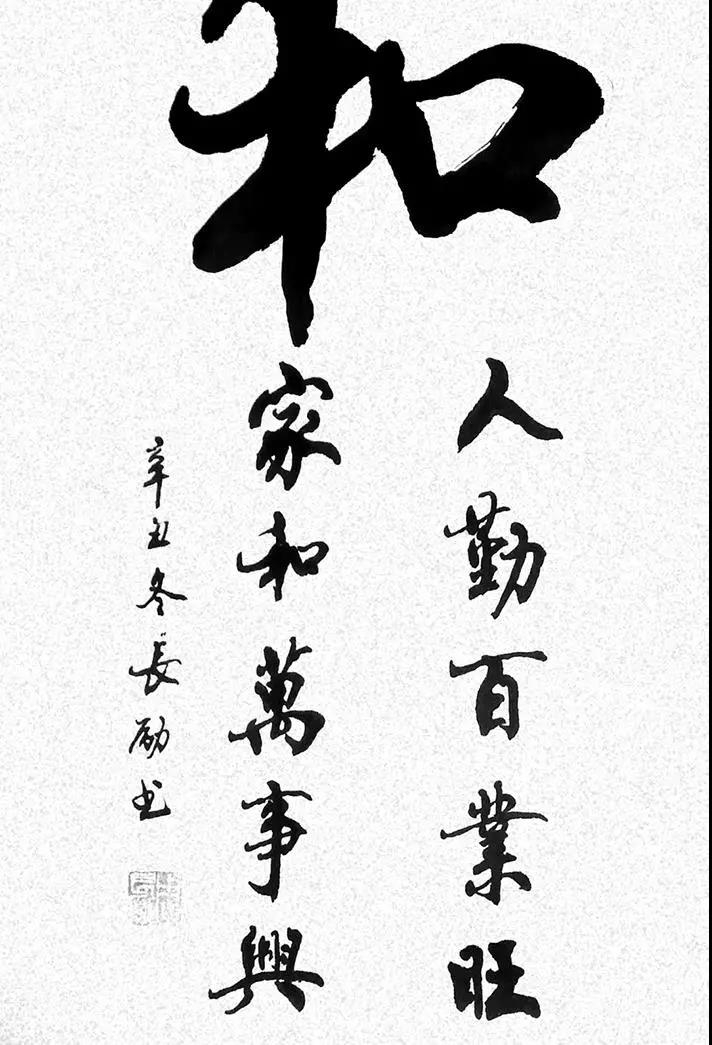 和
人勤百業旺
家和萬事興
辛丑冬長励书